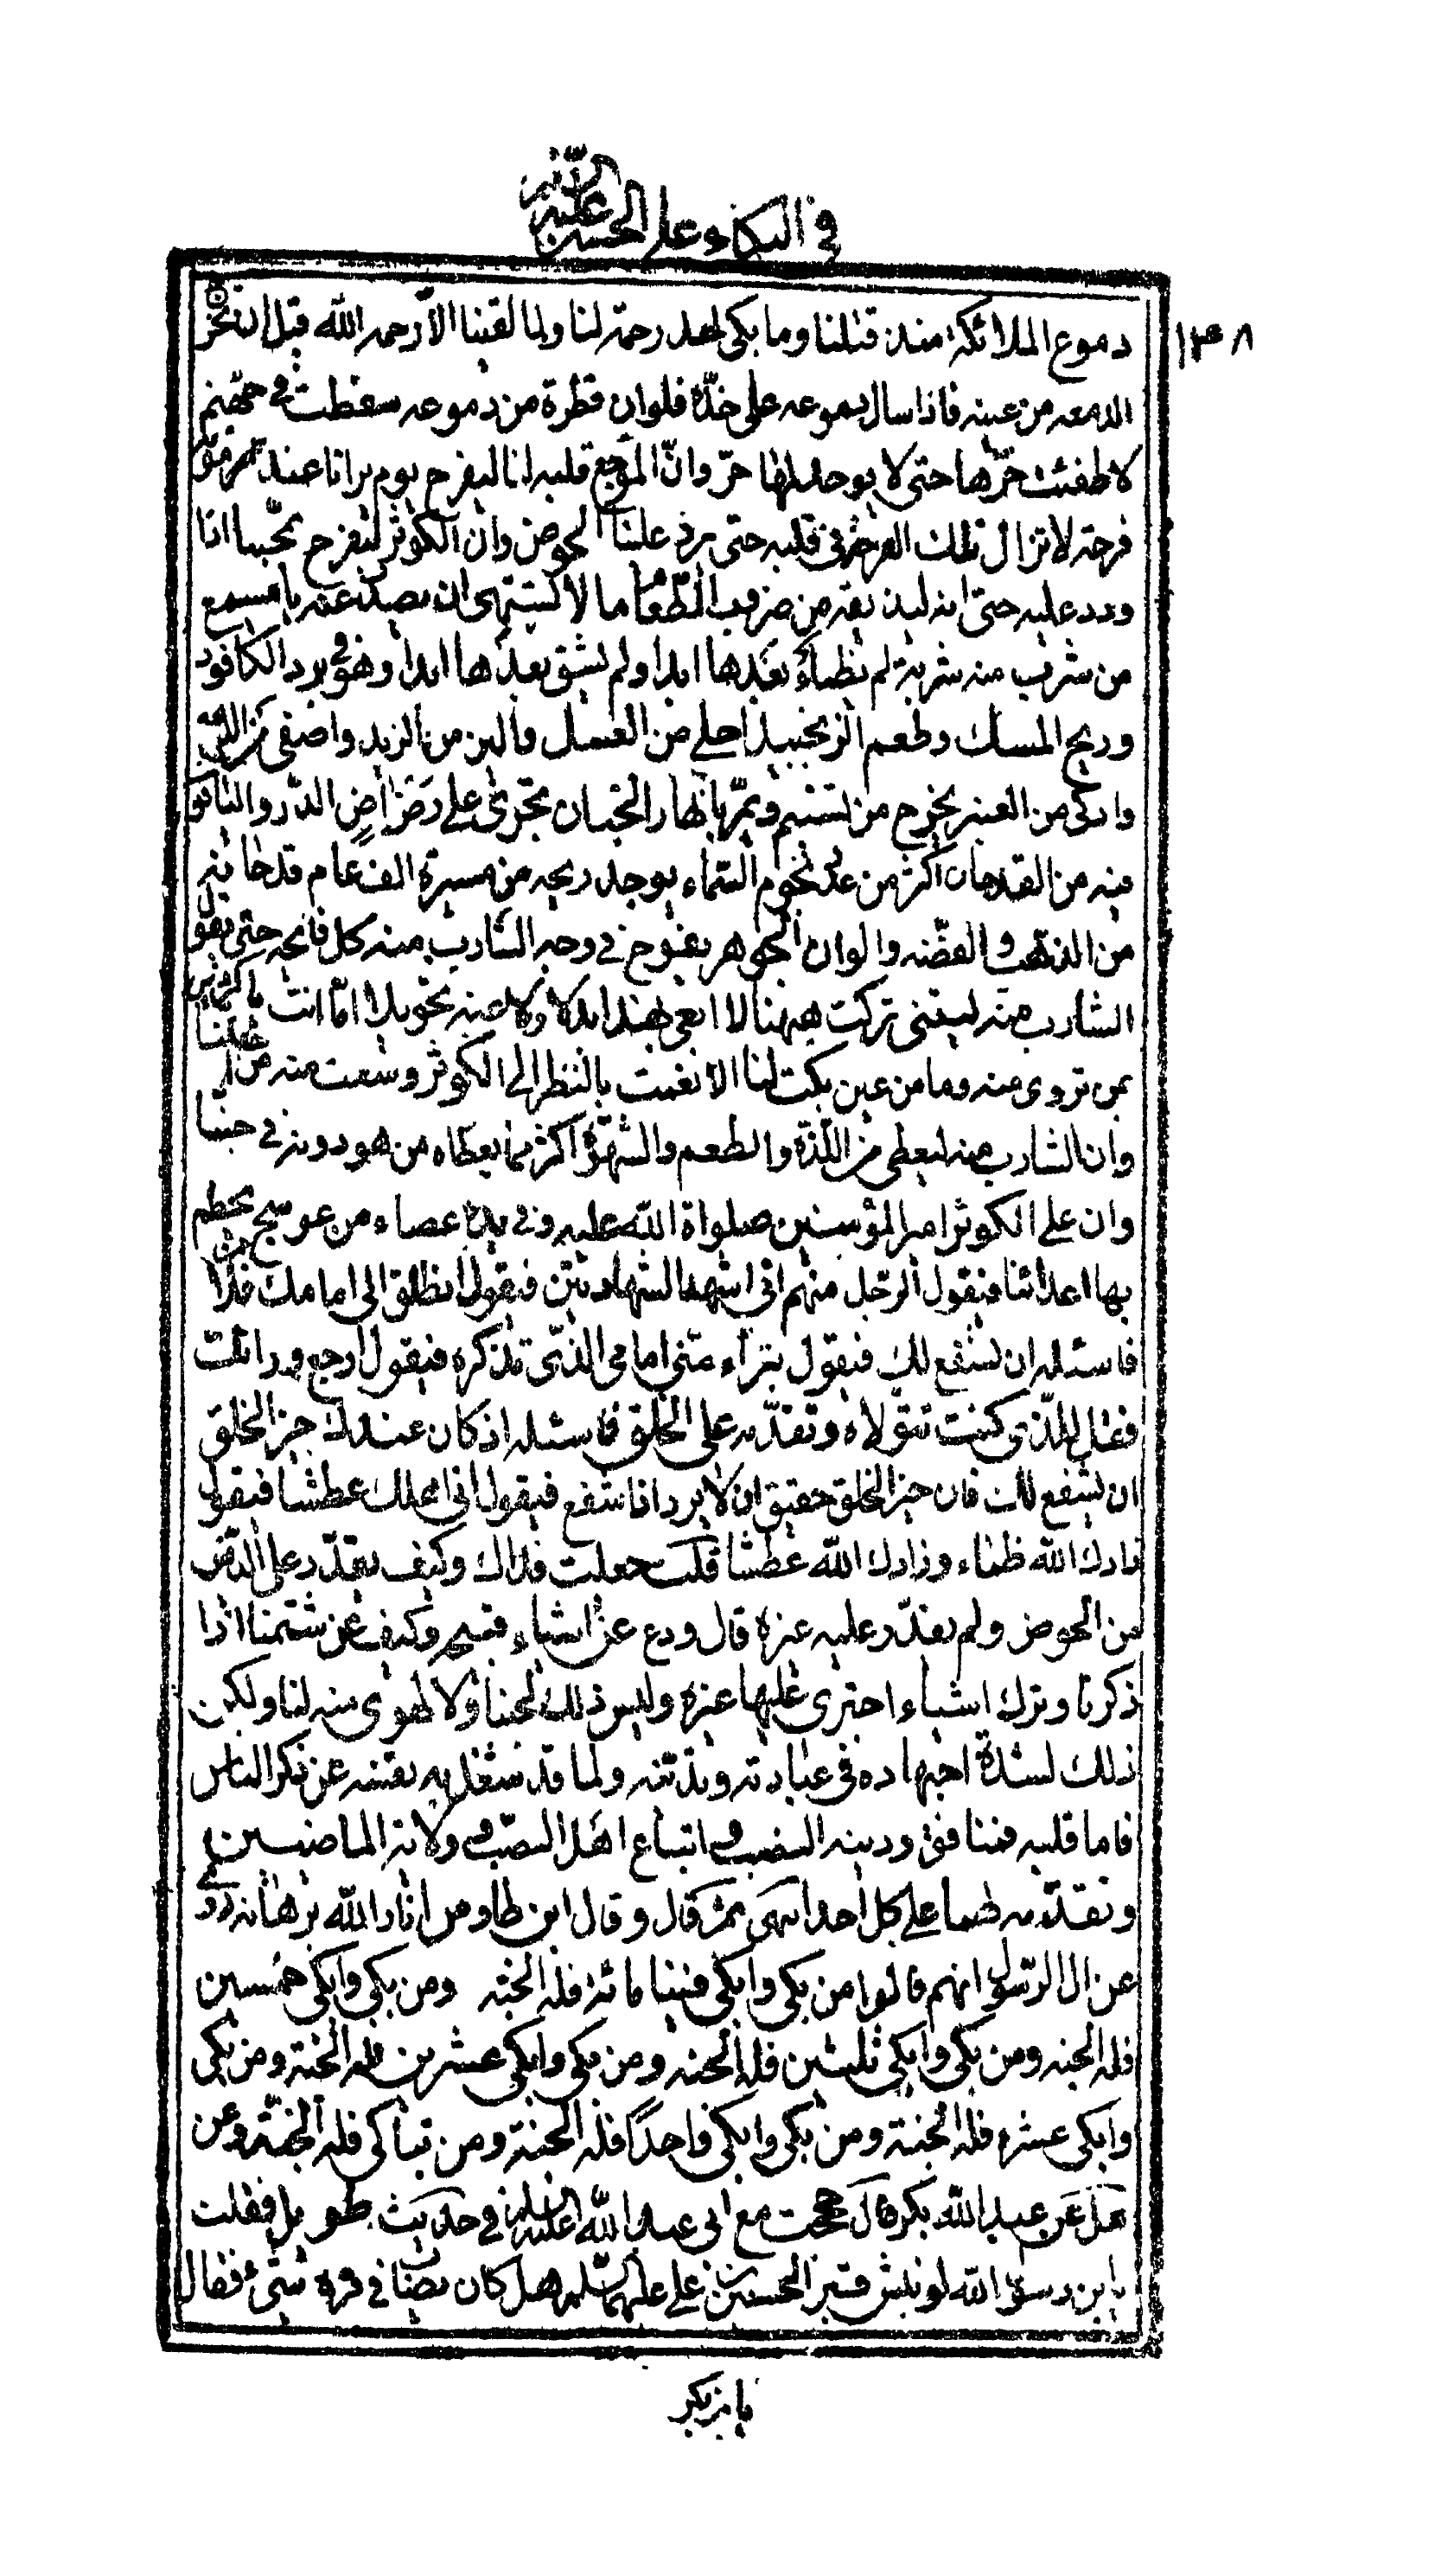 في البكاء على الحسين عليه السلام
١٣٨
دموع الملائكة منذ قتلنا وما بكى احد رحمة لنا ولما لقينا الا رحمه الله قبل ان تخرج
الدمعه من عينه فاذا سال دموعه على خدّه فلو ان قطرة من دموعه سقطت في جهنم
لاطفئت حرّها حتى لا يوجد لها حرّ وانّ الموجع قلبه لنا ليفرح يوم يرانا عند موته
فرحة لا تزال تلك الفرحة في قلبه حتى يرد علينا الحوض وان الكوثر ليفرح بمحبنا اذا
ورد عليه حتى انه ليذيقه من ضروب الطعام ما لا يشتهى ان يصدر عنه يا مسمع
من شرب منه شربة لم يظماء بعدها ابدا ولم يشق بعدها ابدا وهو في برد الكافور
وريح المسك وطعم الزنجبيل احلى من العسل والين من الزبد واصفى من الدمع
واذكى من العنبر يخرج من تسنيم ويمرّ بانهار الجنان تجرى على رضراض الدّر والياقوت
فيه من القدحان اكثر من عدد نجوم السّماء يوجد ريحه من مسيرة الف عام قدحانه
من الذهب والفضّه والوان الجوهر يفوح في وجه الشارب منه كل فائحه حتى يقول
الشارب منه ليتنى تركت هيهنا لا ابغى بهذا بدلا ولا عنه تحويلا امّا انت يا كردين
ممن تروى منه وما من عين بكت لنا الا نعمت بالنظر الى الكوثر وسقيت منه من احبنا
وان الشارب منه ليعطى من اللّذة والطعم والشهوة اكثر مما يعطاه من هو دونه في حبنّا
وان على الكوثر امير المؤمنين صلواة الله عليه وفى يده عصاء من عوسج يحطم
بها اعدائنا فيقول الرّجل منهم انى اشهد الشهادتين فيقول انطلق الى امامك فلان
فاسئله ان يشفع لك فيقول يتبراء منّى امامى الذّى تذكره فيقول ارجع ورائك
فقل للذّى كنت تتولاه وتقدّمه على الخلق فاسئله اذ كان عندك خير الخلق
ان يشفع لك فان خير الخلق حقيق ان لا يرد اذا شفع فيقول انى اهلك عطشا فيقول
زادك الله ظماء وزادك الله عطشا قلت جعلت فداك وكيف يقدّر على الدّنو
من الحوض ولم يقدّر عليه غيره قال ودع عن اشياء قبيحه وكيف عن شتمنا اذا
ذكرنا وترك اشياء اجترى عليها غيره وليس ذلك لحبنا ولا لهوى منه لنا ولكن
ذلك لشدّة اجتهاده في عبادته وتديّنه ولما قد شغل به نفسه عن ذكر الناس
فاما قلبه فمنافق ودينه النصب واتباع اهل النصب وولاية الماضين
وتقدّمه لهما على كل احد انتهى ثم قال وقال ابن طاوس انار الله برهانه روى
عن ال الرّسول انهم قالوا من بكى وابكى فينا مائة فله الجنّه ومن بكى وابكى خمسين
فله الجنه ومن بكى وابكى ثلثين فله الجنه ومن بكى وابكى عشرين فله الجنة ومن بكى
وابكى عشره فله الجنة ومن بكى وابكى واحدًا فله الجنة ومن تباكى فله الجنّة وعن
مل عن عبد الله بكر قال حججت مع ابى عبد الله عليه السلام في حديث طويل فقلت
يا بن رسول الله لو نبش قبر الحسين بن على عليهما السّلام هل كان يصاب في قبره شىء فقال
يا بن بكير